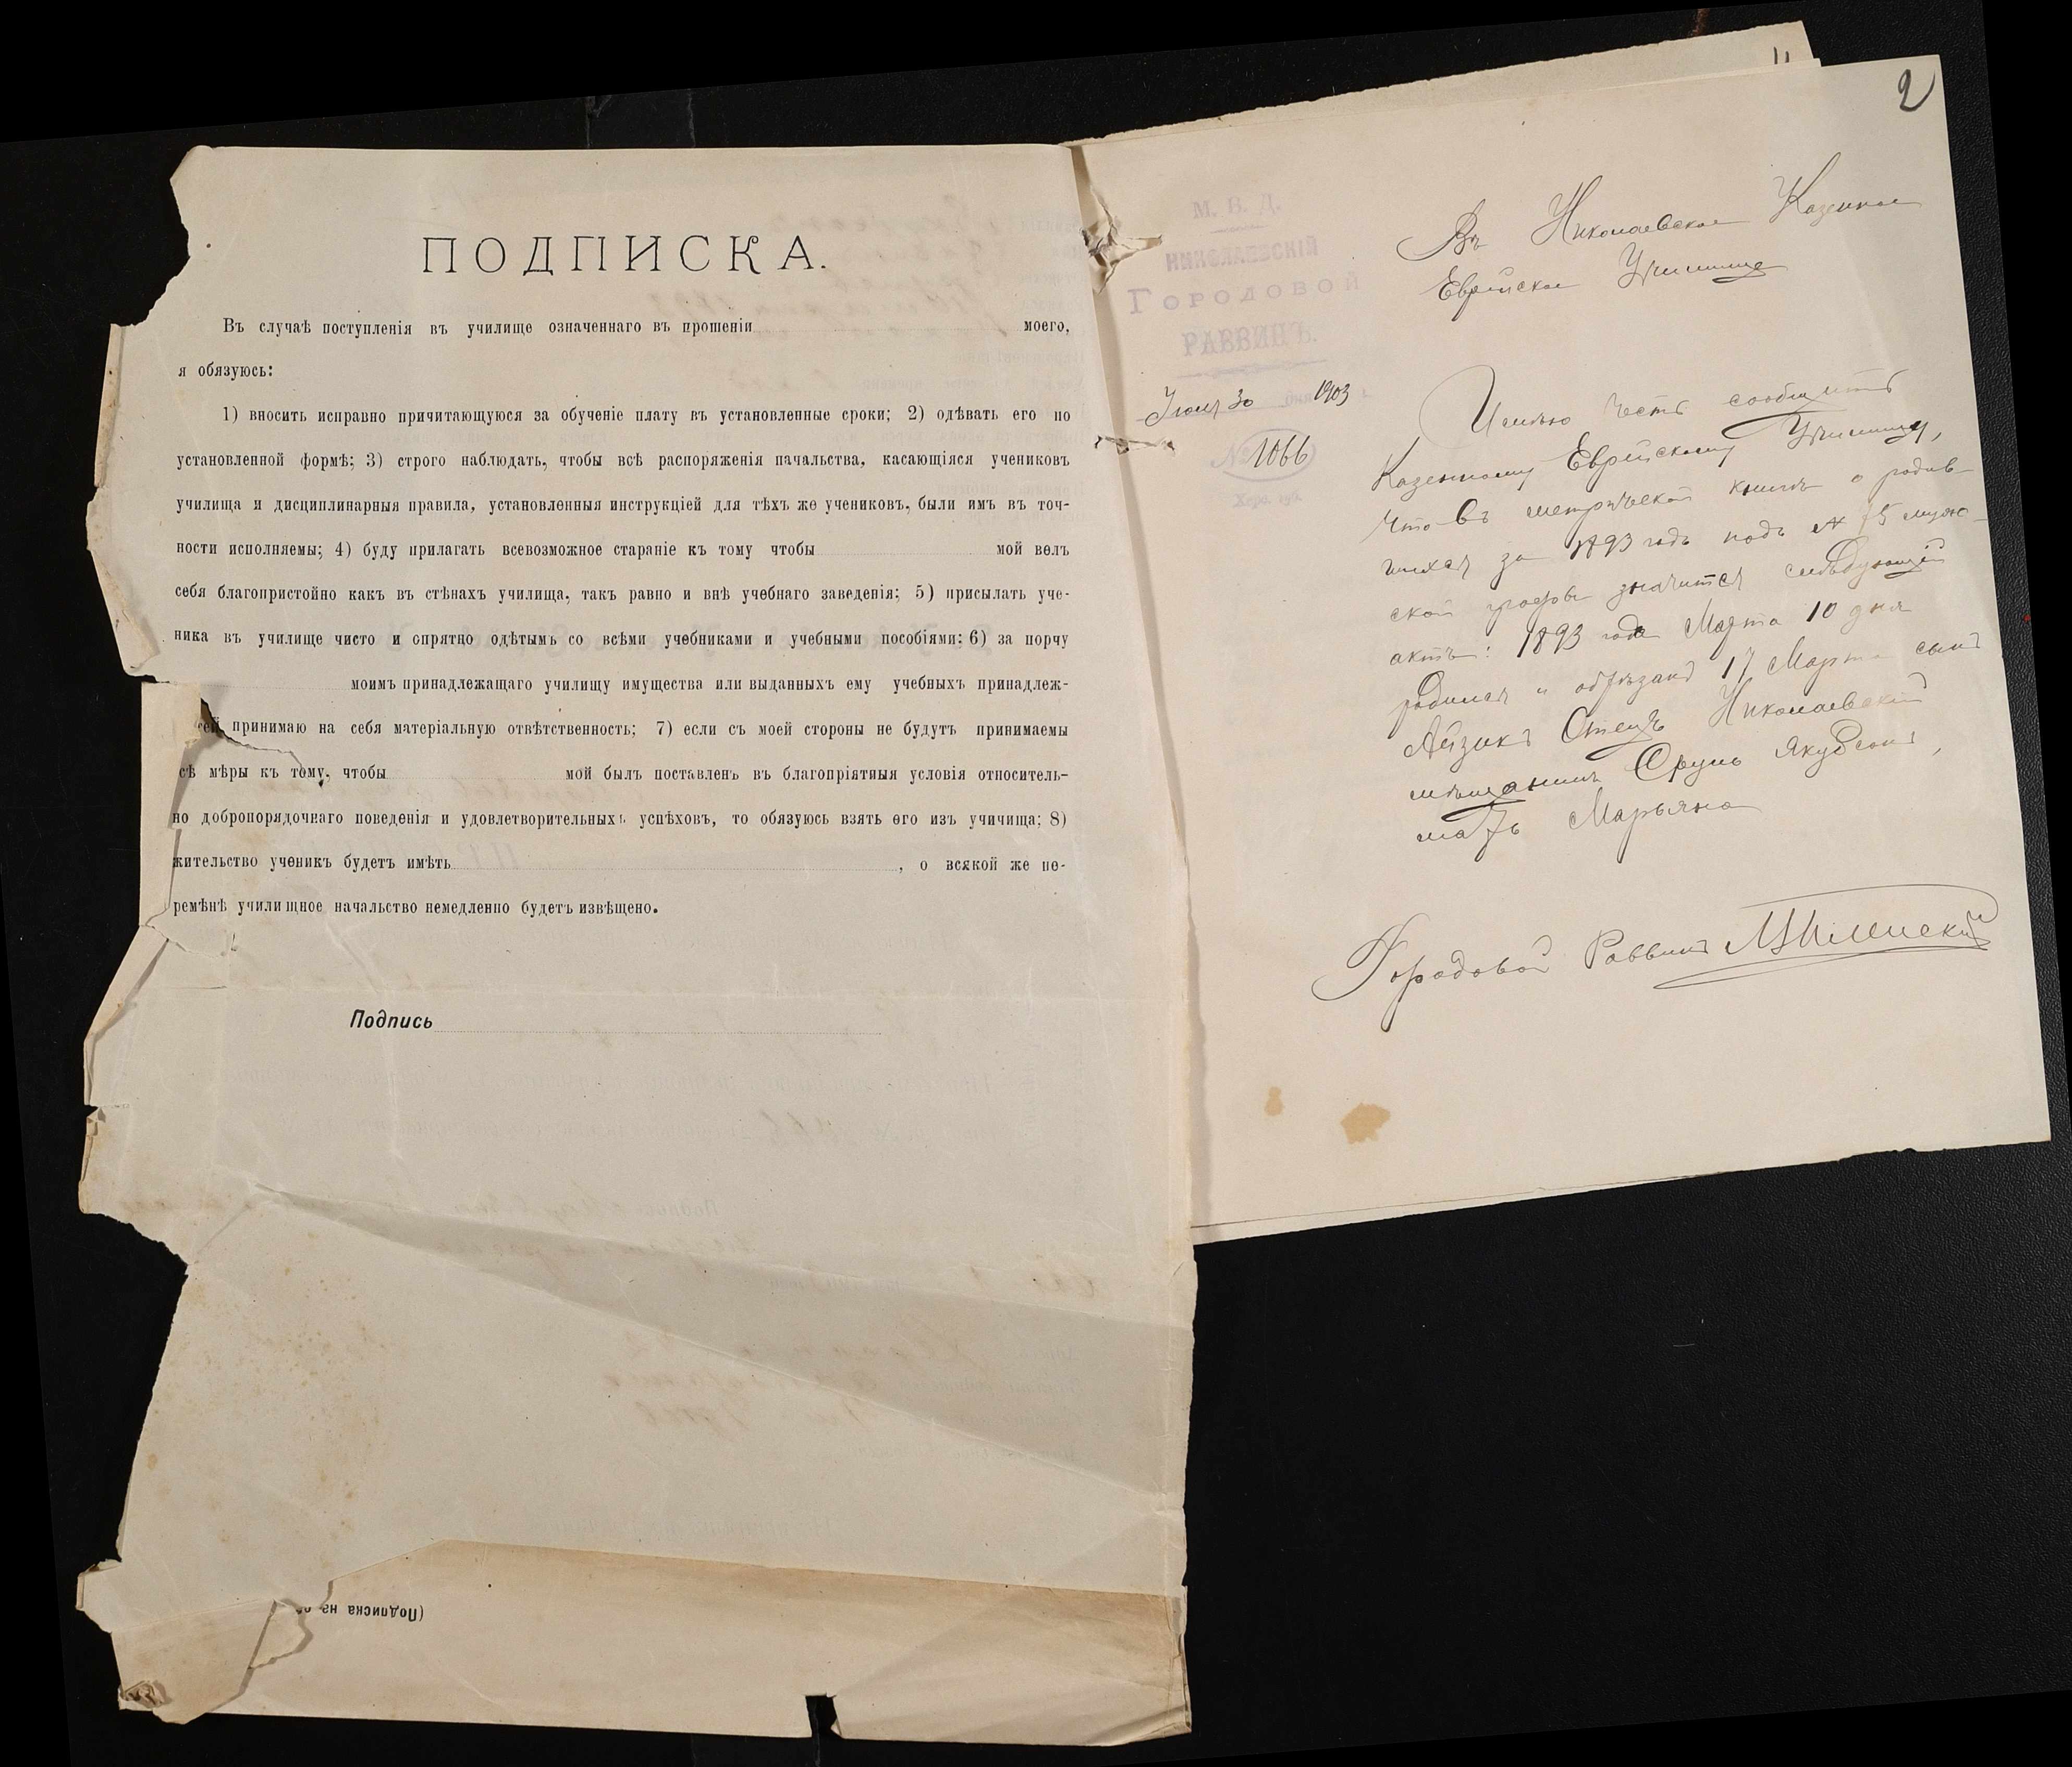 ПОДПИСКА.
Въ случаѣ поступленія въ училище означеннаго въ прошеніи моего,
я обязуюсь:
1) вносить исправно причитающуюся за обученіе плату въ установленные сроки; 2) одѣвать его по
установленной формѣ; 3) строго наблюдать, чтобы всѣ распоряженія начальства, касающіяся учениковъ
училища и дисциплинарныя правила, установленныя инструкціей для тѣхъ же учениковъ, были имъ въ точ-
ности исполняемы; 4) буду прилагать всевозможное стараніе къ тому чтобы мой велъ
себя благопристойно какъ въ стѣнахъ училища, такъ равно и внѣ учебнаго заведенія; 5) присылать уче-
ника въ училище чисто и опрятно одѣтымъ со всѣми учебниками и учебными пособіями: 6) за порчу
моимъ принадлежащаго училищу имущества или выданныхъ ему учебныхъ принадлеж-
сей принимаю на себя матеріальную отвѣтственность; 7) если съ моей стороны не будутъ принимаемы
сѣ мѣры къ тому, чтобы мой былъ поставленъ въ благопріятныя условія относитель-
но добропорядочнаго поведенія и удовлетворительныхъ успѣховъ, то обязуюсь взять его изъ учичища; 8)
жительство ученикъ будетъ имѣть, о всякой же пе-
ремѣнѣ училищное начальство немедленно будетъ извѣщено.
Подпись
(Подписка на
2
М. В. Д.
НИКОЛАЕВСКІЙ
ГОРОДОВОЙ
РАВВИНЪ.
Іюля 30 дня 1903 г.
№ 1066
Херс. губ.
Въ Николаевское Казенное
Еврейское Училище
Имѣю честь сообщить
Казенному Еврейскому Училищу,
что въ метрической книгѣ о родив-
шихся за 1893 годъ подъ № 75 муж-
ской графы значится слѣдующій
актъ: 1893 года Марта 10 дня
родился и обрѣзанъ 17 Марта сынъ
Айзикъ Отецъ Николаевскій
мѣщанинъ Сруль Якубсонъ,
мать Марьяна
Городовой Раввинъ